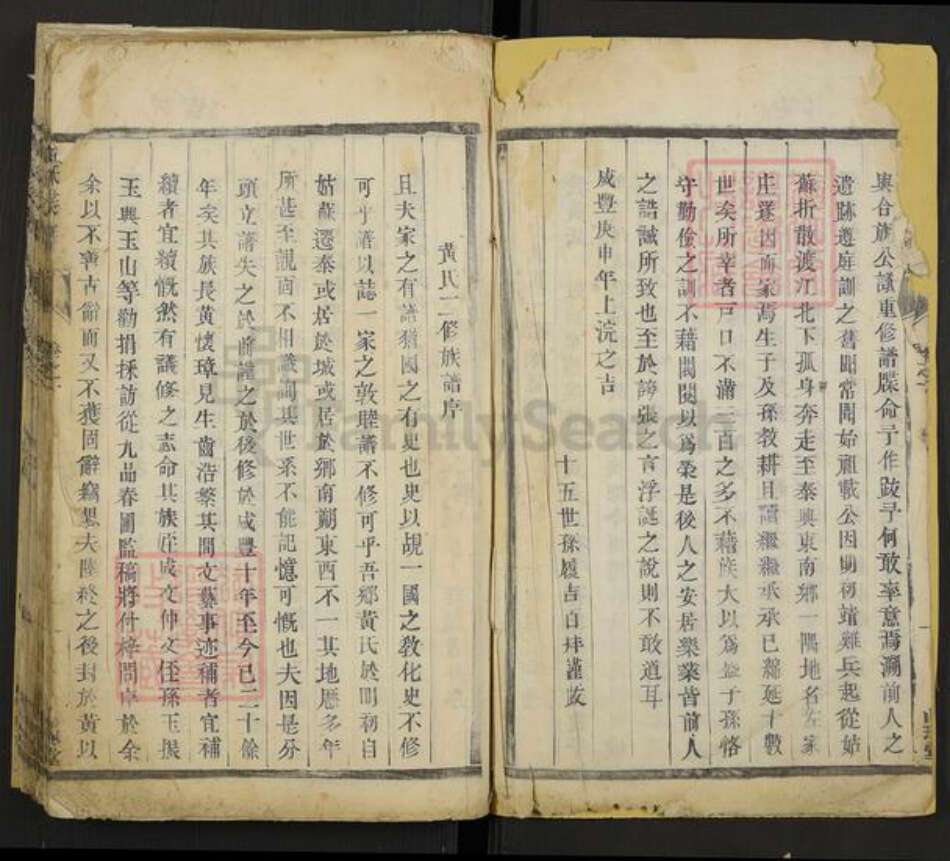 與合族公議重修譜牒命予作跋予何敢率意焉溯前人之
遺跡遵庭訓之舊聞常聞始祖載公因明初靖難兵起從姑
蘇折散渡江北下孤身奔走至泰興東南鄉一隅地名左家
庄遂因而家焉生子及孫教耕且讀繼繼承承已綿延十數
世矣所幸者戶口不滿三百之多不藉族大以為榮子孫恪
守勤儉之訓不藉閥閱以爲榮是後人之安居樂業皆前人
之誥誡所致也至於誇張之言浮誕之說則不敢道耳
咸豐庚申年上浣之吉
十五世孫履吉百拜謹跋
黃氏二修族譜序
且夫家之有譜猶國之有史也史以覘一國之教化史不修
可乎譜以誌一家之敦睦譜不修可乎吾鄉黃氏於明初自
姑蘇遷泰或居於城或居於鄉南朔東西不一其地歷多年
所甚至覿面不相識詢其世系不能記憶可慨也夫因是分
頭立譜失之於前謹之於後修於咸豐十年至今已二十餘
年矣其族長黃懷璋見生齒浩繁其間文藝事迹補者宜補
續者宜續慨然有議修之志命其族庄成文仲文侄孫玉振
玉興玉山等勸捐採訪從九品春圃監稿將付梓問序於余
余以不善古辭而又不獲固辭竊思夫陸終之後封於黃以
FamilySearch